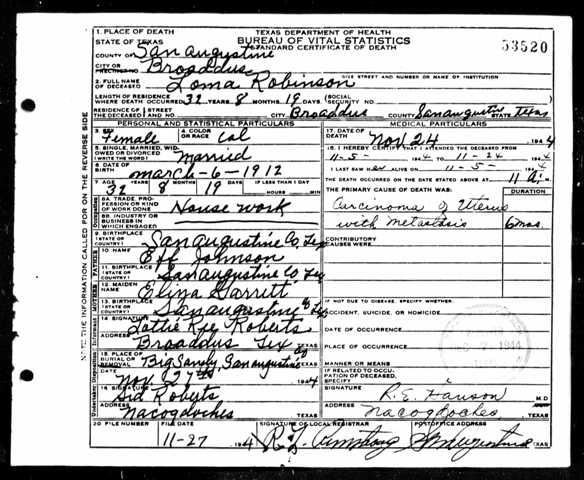 1. PLACE OF DEATH
STATE OF TEXAS
TEXAS DEPARTMENT OF HEALTH
BUREAU OF VITAL STATISTICS
STANDARD CERTIFICATE OF DEATH
53520
COUNTY OF San Augustine
CITY OR PRECINCT NO. Broaddus
GIVE STREET AND NUMBER OR NAME OF INSTITUTION
2. FULL NAME OF DECEASED Loma Robinson
LENGTH OF RESIDENCE WHERE DEATH OCCURRED 32 YEARS 8 MONTHS 19 DAYS (SOCIAL SECURITY NO.
RESIDENCE OF THE DECEASED STREET AND NO. CITY Broaddus COUNTY San augustine STATE Texas
PERSONAL AND STATISTICAL PARTICULARS
MEDICAL PARTICULARS
3. SEX Female
4. COLOR OR RACE Col
17. DATE OF DEATH Nov 24 1944
5. SINGLE, MARRIED, WIDOWED OR DIVORCED (WRITE THE WORD) Married
18. I HEREBY CERTIFY THAT I ATTENDED THE DECEASED FROM
11-5- 1944 TO 11-24 1944
6. DATE OF BIRTH march-6-1912
I LAST SAW ALIVE ON 11-5- 1944
7. AGE 32 YEARS 8 MONTHS 19 DAYS IF LESS THAN 1 DAY HOURS MIN
THE DEATH OCCURRED ON THE DATE STATED ABOVE AT 11 M.
THE PRIMARY CAUSE OF DEATH WAS:
DURATION
8A. TRADE, PROFESSION OR KIND OF WORK DONE House work
Carcinoma of Uterus
with metastasis 6mos.
8B. INDUSTRY OR BUSINESS IN WHICH ENGAGED
9. BIRTHPLACE (STATE OR COUNTRY) San augustine Co, Tex
CONTRIBUTORY CAUSES WERE:
10. NAME Eff Johnson
11. BIRTHPLACE (STATE OR COUNTRY) San augustine Co, Tex
12. MAIDEN NAME Eliza Garrett
13. BIRTHPLACE (STATE OR COUNTRY) San augustine Co Tex
IF NOT DUE TO DISEASE, SPECIFY WHETHER:
ACCIDENT, SUICIDE, OR HOMICIDE
14. SIGNATURE Lottie Rae Roberts
DATE OF OCCURRENCE
ADDRESS Broaddus Tex TEXAS
PLACE OF OCCURRENCE
15. PLACE OF BURIAL OR REMOVAL Big Sandy, San augustine Co TEXAS
MANNER OR MEANS
1944
IF RELATED TO OCCUPATION OF DECEASED, SPECIFY
16. SIGNATURE Sid Roberts
SIGNATURE R. E. M.D
ADDRESS Nacogdoches TEXAS
ADDRESS Nacogdoches TEXAS
20 FILE NUMBER
FILE DATE 11-27 194
SIGNATURE OF LOCAL REGISTRAR R. L. Armstrong
POSTOFFICE ADDRESS San augustine TEXAS
NOTE THE INFORMATION CALLED FOR ON THE REVERSE SIDE
Occupation
FATHER
MOTHER
Informant
Undertaking, Disposition